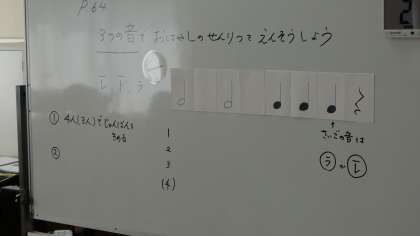 P.64
3つの音で おはやしの せんりつを えんそうしよう
① 4人(3人)で じゅんばんを
きめる
②
1
2
3
(4)
↑
さいごの音は
ラ か レ